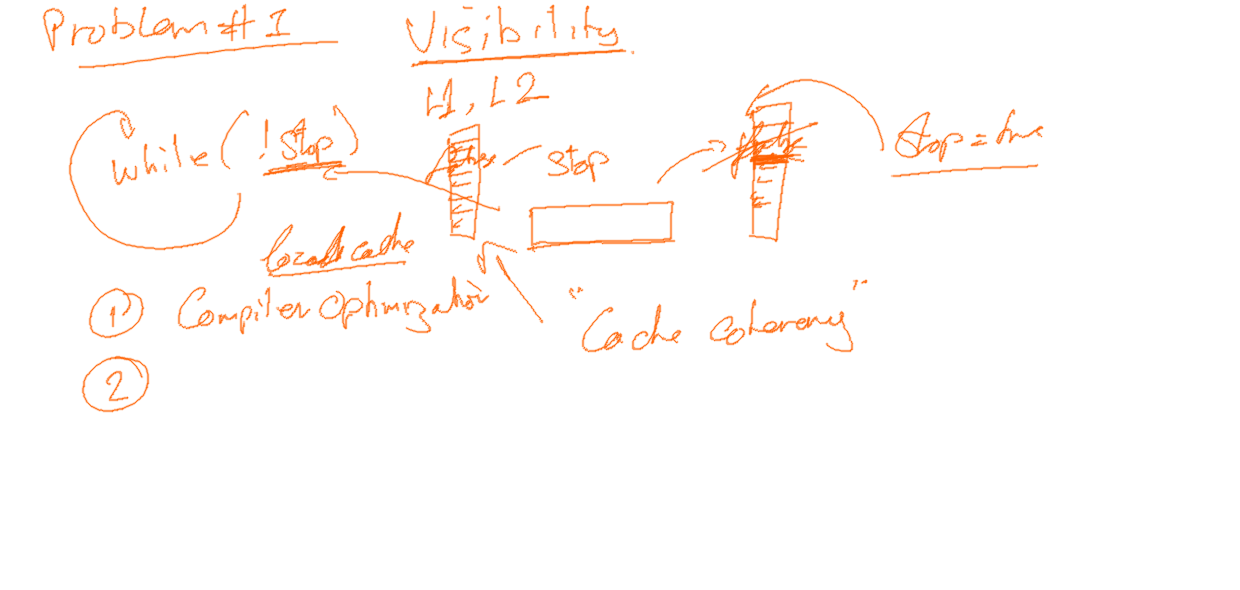 Problem #1 Visibility
L1, L2
while (! Stop) Stop Stop = true
local cache
① Compiler Optimization
"Cache coherency"
②